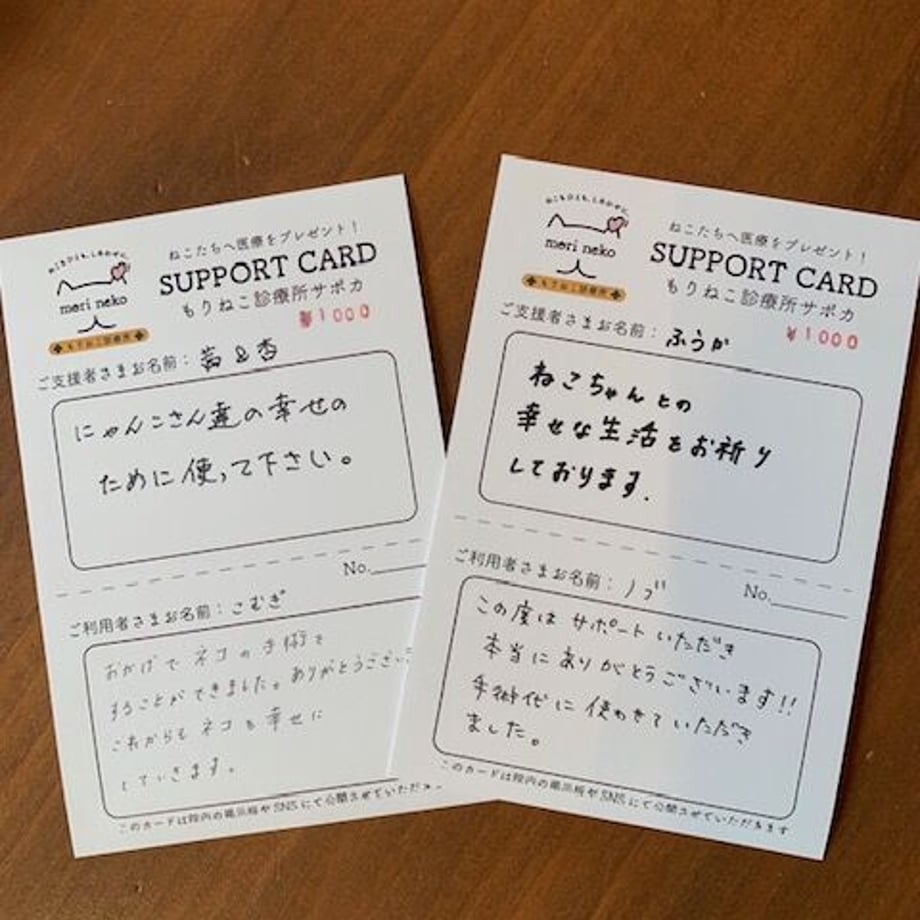 ねこもひとも、しあわせに。
meri neko
もりねこ診療所
ねこたちへ医療をプレゼント!
SUPPORT CARD
もりねこ診療所サポカ
¥1000
ご支援者さまお名前:
にゃんこさん達の幸せの
ために使って下さい。
No.
ご利用者さまお名前:こむぎ
おかげでネコの手術を
することができました。ありがとうござい
これからもネコを幸せに
していきます。
このカードは院内の掲示板やSNSにて公開させていただき
ねこもひとも、しあわせに。
meri neko
もりねこ診療所
ねこたちへ医療をプレゼント!
SUPPORT CARD
もりねこ診療所サポカ
¥1000
ご支援者さまお名前:ふうか
ねこちゃんとの
幸せな生活をお祈り
しております.
No.
ご利用者さまお名前:ノブ
この度はサポートいただき
本当にありがとうございます!!
手術代に使わせていただき
ました。
このカードは院内の掲示板やSNSにて公開させていただきます